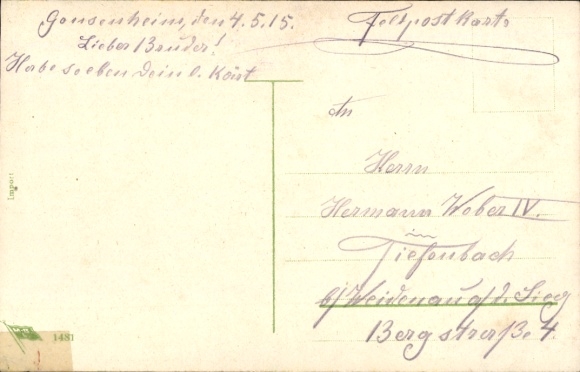 Gonsenheim, den 4.5.15.
Lieber Bruder!
Habe soeben dein l. Kart
Feldpostkarte
An
Herrn
Hermann Weber IV.
in
Tiefenbach
b/Weidenau a/d. Sieg
Bergstraße 4.
Import
1481